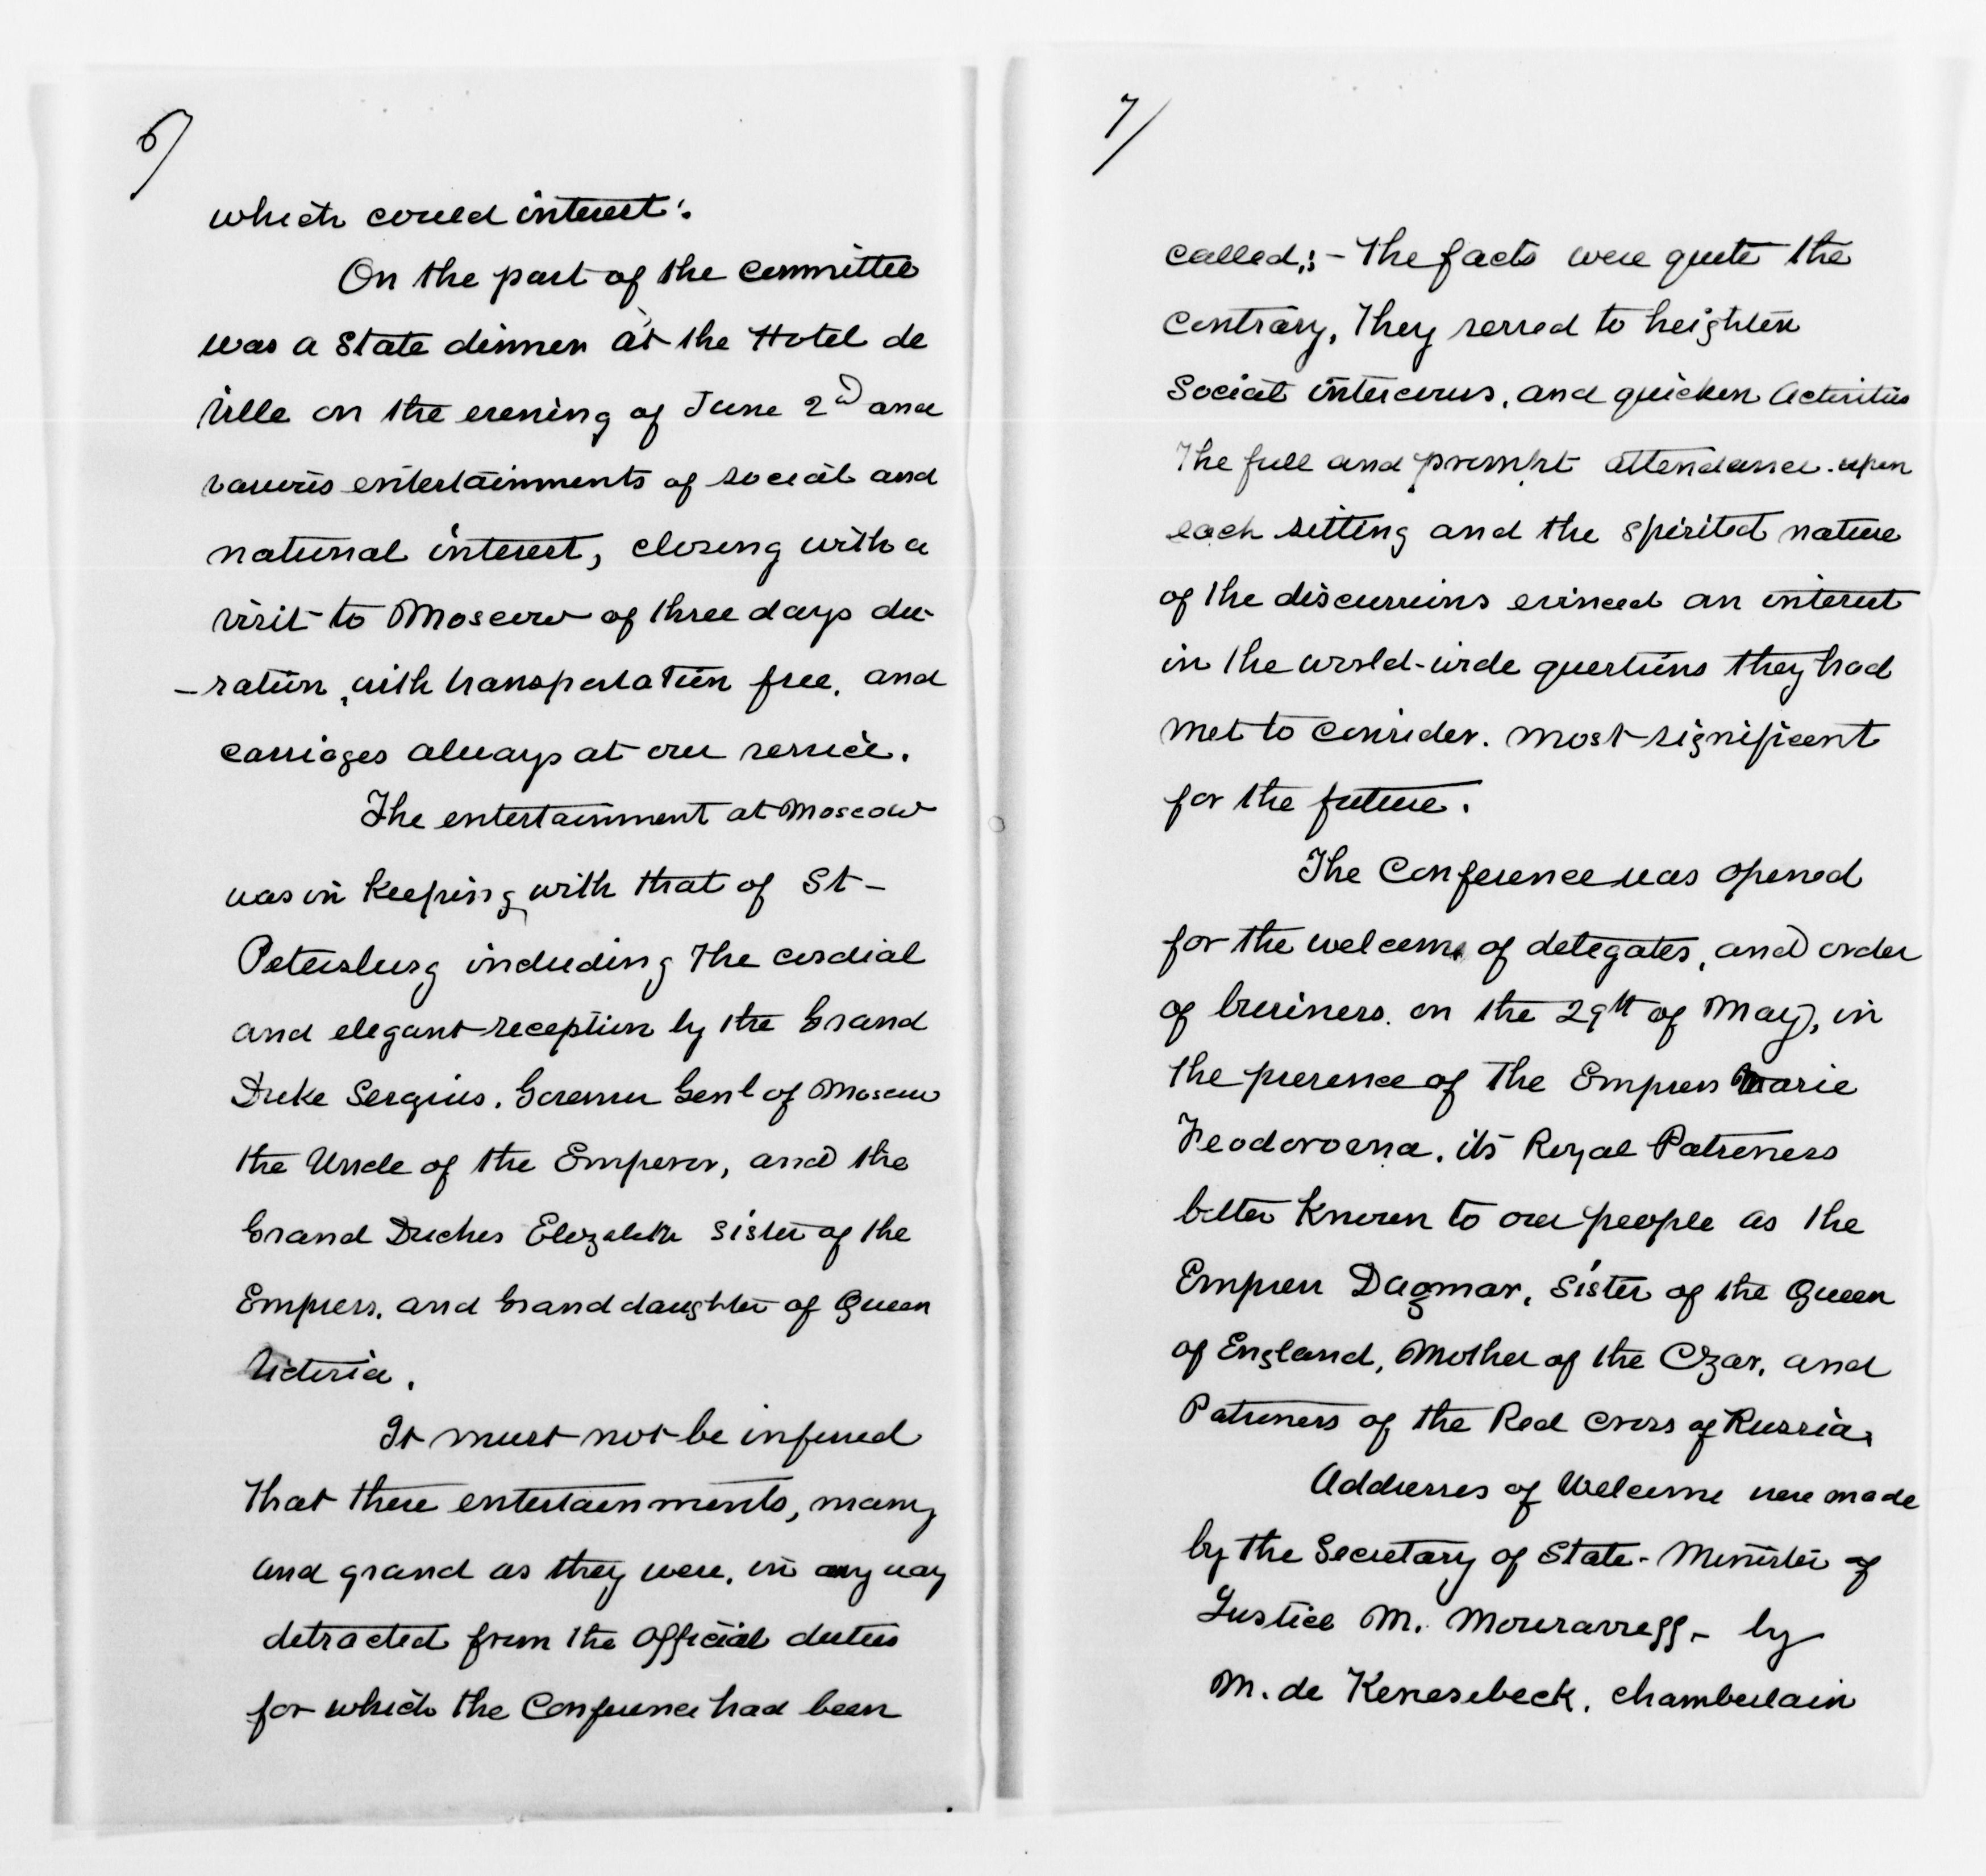 6/
which could interest.
On the part of the committee
was a State dinner at the Hotel de
Ville on the evening of June 2d and
various entertainments of social and
national interest, closing with a
visit to Moscow of three days du-
-ration, with transportation free, and
carriages always at our service.
The entertainment at Moscow
was in keeping with that of St-
Petersburg including the cordial
and elegant reception by the Grand
Duke Sergius. Governor Genl of Moscow
the Uncle of the Emperor, and the
Grand Duches Elizabeth sister of the
Empress, and Grand daughter of Queen
Victoria.
It must not be inferred
that these entertainments, many
and grand as they were, in any way
detracted from the official duties
for which the Conference had been
7/
called; - The facts were quite the
contrary, They served to heighten
Social intercours, and quicken activities
The full and prompt attendance upon
each sitting and the spirited nature
of the discussions evinced an interest
in the world-wide questions they had
met to consider. most significent
for the future.
The Conference was opened
for the welcome of delegates, and order
of business. on the 29th of May, in
the presence of the Empress Marie
Feodorovna, its Royal Patroness
better known to our people as the
Empress Dagmar, Sister of the Queen
of England, Mother of the Czar, and
Patroness of the Red Cross of Russia.
Addresses of Welcome were made
by the Secretary of State - Minister of
Justice M. Mouravieff - by
M. de Kenesebeck, chamberlain